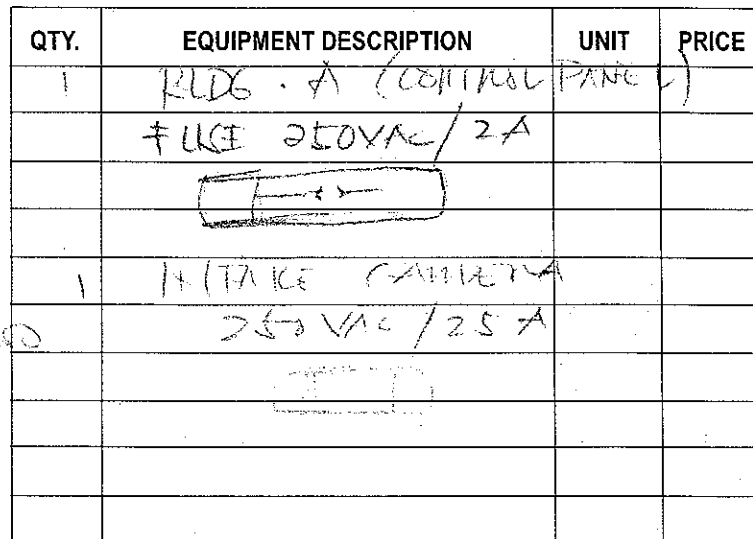 QTY. EQUIPMENT DESCRIPTION UNIT PRICE
1 BLDG. A (CONTROL PANEL)
FUSE 250VAC/2A
1 INTAKE CAMERA
250 VAC/25 A